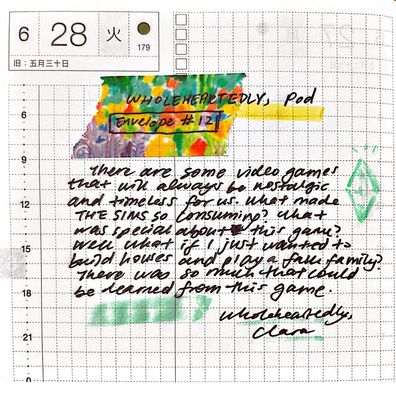 6 28 火 179
旧：五月三十日
WHOLEHEARTEDLY, Pod
Envelope #12
6
9
12
15
18
21
0
There are some video games
that will always be nostalgic
and timeless for us. What made
THE SIMS so consuming? What
was special about this game?
Well what if I just wanted to
build houses and play a fake family?
There was so much that could
be learned from this game.
Wholeheartedly,
Clara